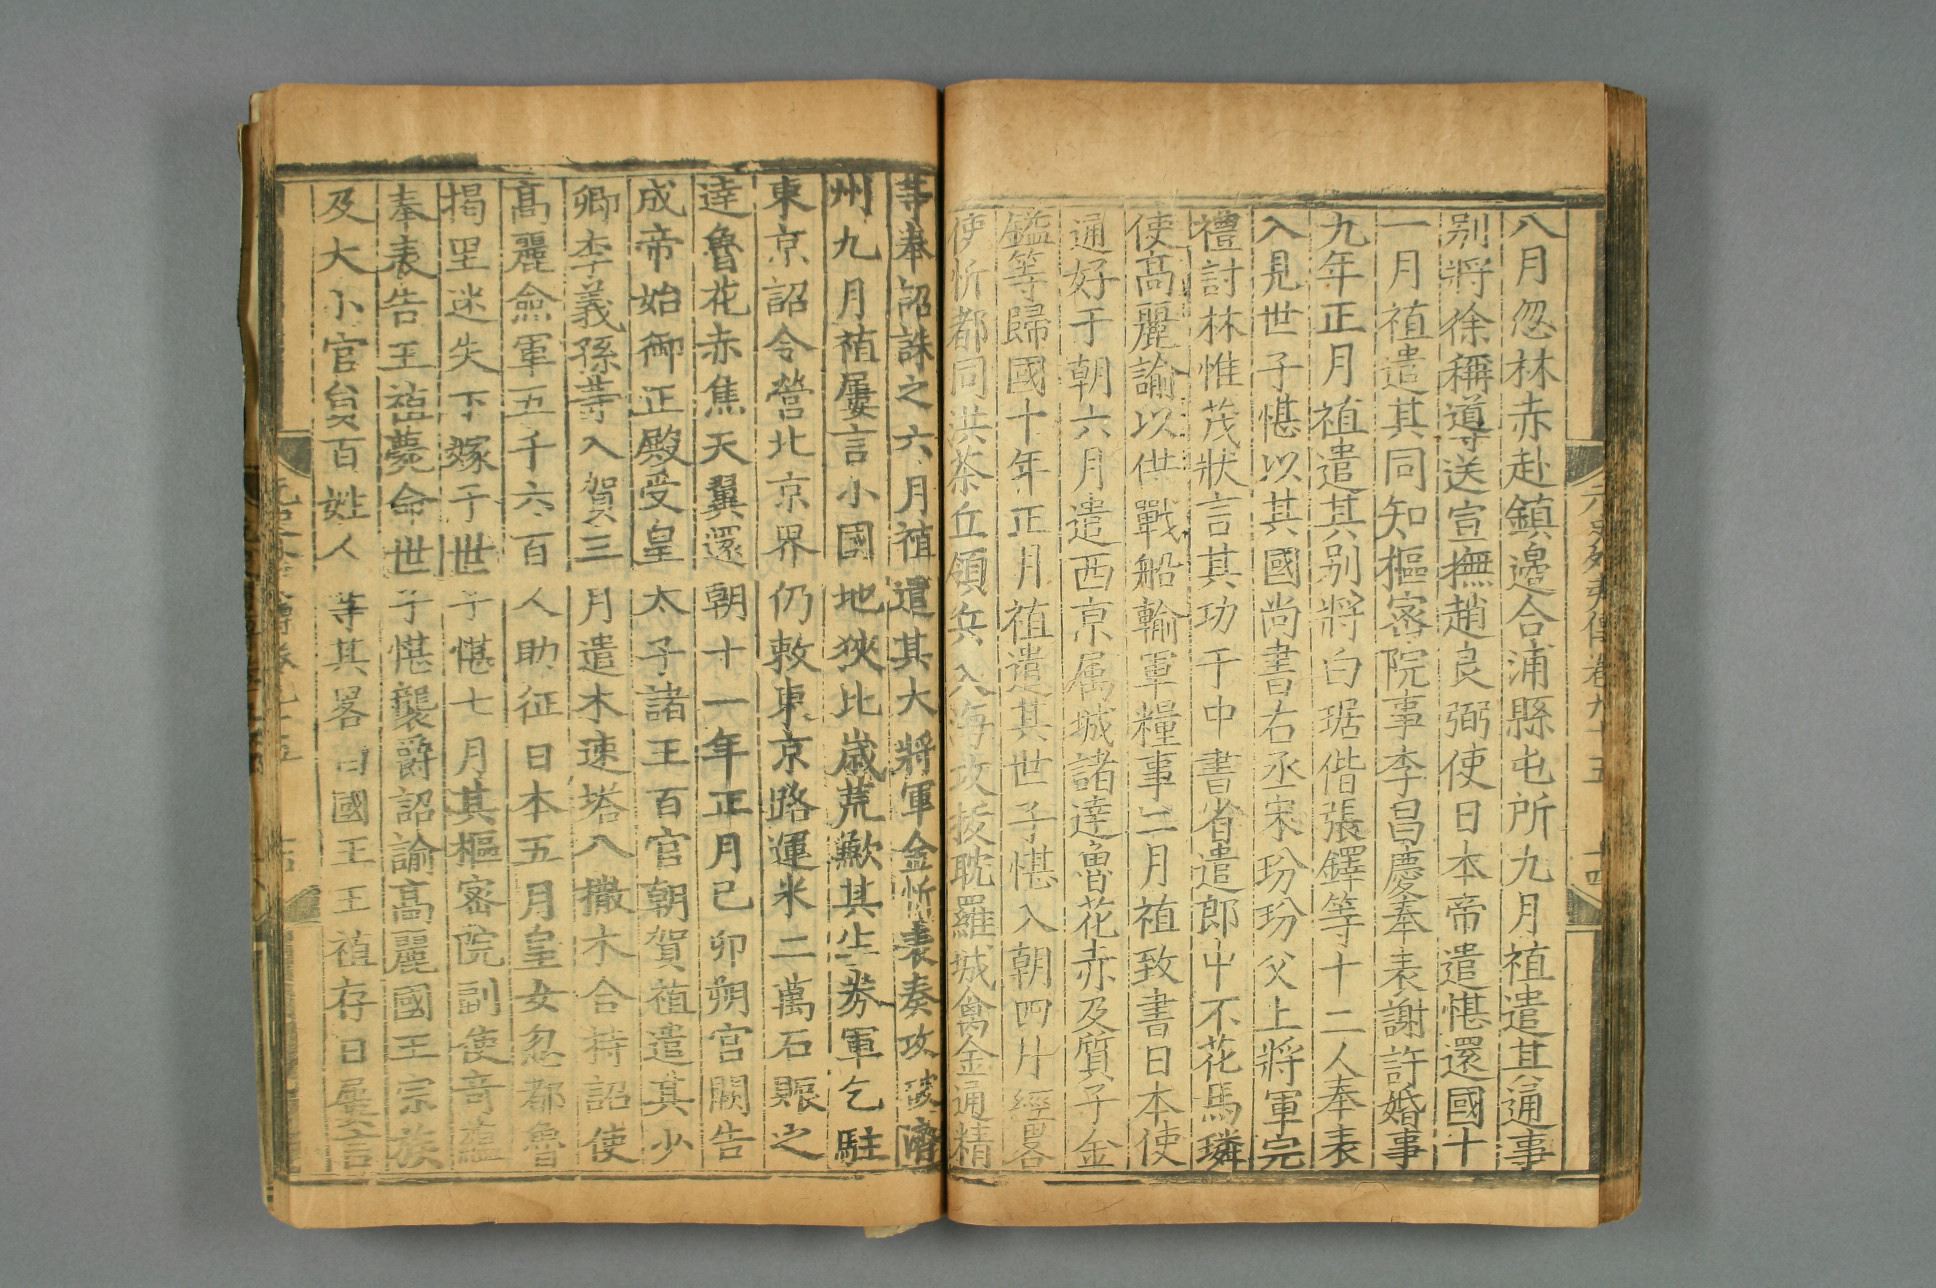 八月忽林赤赴鎮邊合浦縣屯所九月禃遣其通事
别將徐稱導送宣撫趙良弼使日本帝遣愖還國十
一月禃遣其同知樞密院事李昌慶奉表謝許婚事
九年正月禃遣其别將白琚偕張鐸等十二人奉表
入見世子愖以其國尚書右丞宋玢玢父上將軍完
禮討林惟茂狀言其功于中書省遣郎中不花馬璘
使高麗諭以供戰船輸軍糧事二月禃致書日本使
通好于朝六月遣西京属城諸達魯花赤及質子金
鎰等歸國十年正月禃遣其世子愖入朝四月經畧
使忻都同洪茶丘領兵入海攻拔耽羅城禽金通精
等奉詔誅之六月禃遣其大將軍金忻表奏攻破濟
州九月禃屢言小國地狹比歲荒歉其生券軍乞駐
東京詔令營北京界仍敕東京路運米二萬石賑之
達魯花赤焦天翼還朝十一年正月己卯朔宫闕告
成帝始御正殿受皇太子諸王百官朝賀禃遣其少
卿李義孫等入賀三月遣木速塔八撒木合持詔使
高麗僉軍五千六百人助征日本五月皇女忽都魯
揭里迷失下嫁于世子愖七月其樞密院副使奇蘊
奉表告王禃薨命世子愖襲爵詔諭高麗國王宗族
及大小官員百姓人等其畧曰國王王禃存日屢言
元史列傳卷九十五 十四